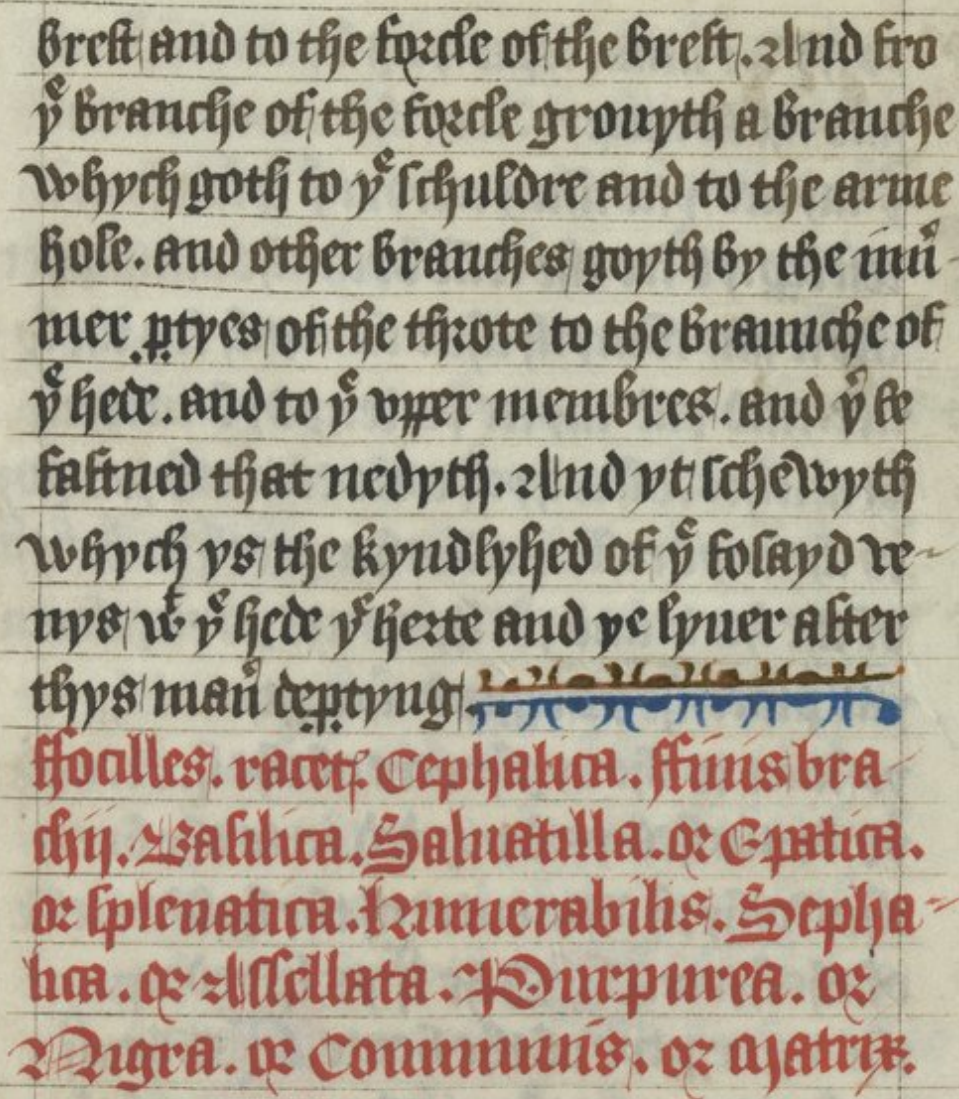 brest and to the forcle of the brest. And fro
yͤ branche of the forcle grouyth a branche
whych goth to yͤ schuldre and to the arme
hole. and other branches goyth by the inn̄
mer ꝑtyes of the throte to the braunche of
yͤ hede. and to yͤ vpper membres. and yͤ be
fastned that nedyth. And yt schewyth
whych ys the kyndlyhed of yͤ forsayd ve-
nys wͭ yͤ hede yͤ herte and ye lyuer after
thys man̄ deꝑtyng
ffocilles. racet. Cephalica. ffunis bra
chij. Basilica. Saluatilla. or Epatica.
or splenatica. humerabilis. Sepha-
lica. or Assellata. Purpurea. or
Nigra. or Communis. or Matrix.